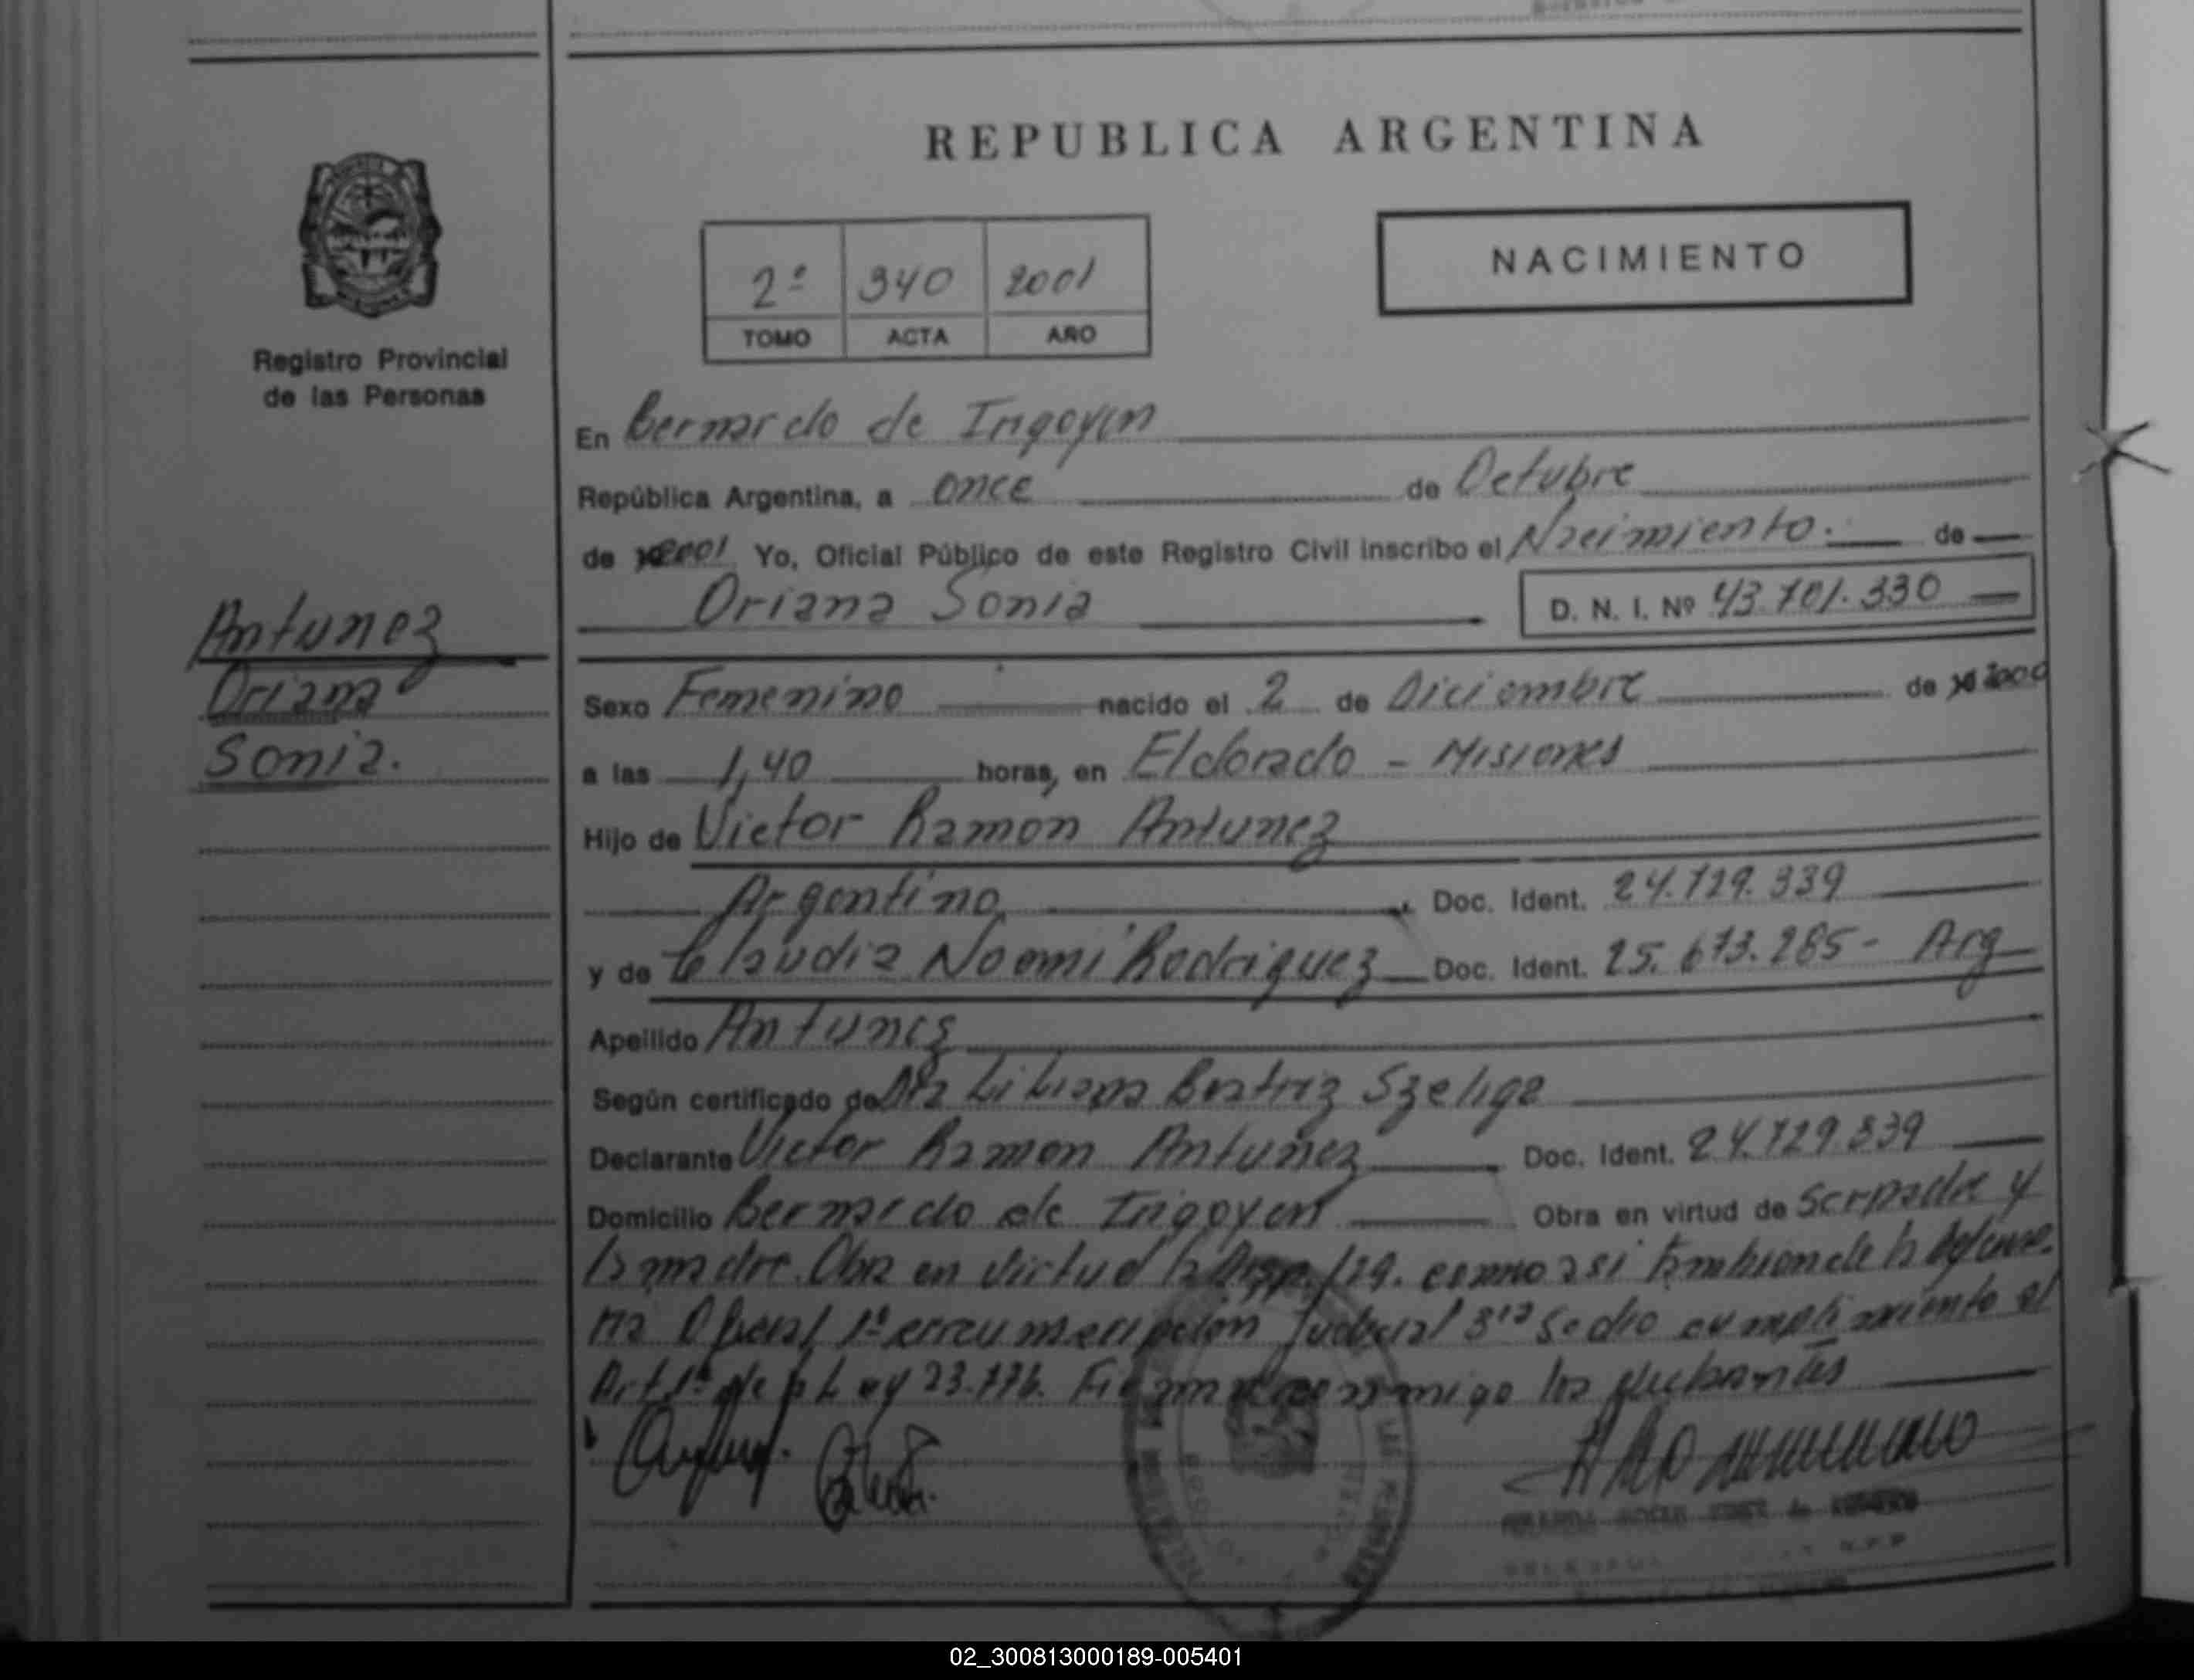 REPUBLICA ARGENTINA
2º 340 2001
TOMO ACTA AÑO
NACIMIENTO
Registro Provincial
de las Personas
Antunez
Oriana
Sonia.
En Bernardo de Irigoyen
República Argentina, a once de Octubre
de 2001 Yo, Oficial Público de este Registro Civil inscribo el Nacimiento. de
Oriana Sonia D. N. I. Nº 43.701.330
Sexo Femenino nacido el 2 de Diciembre de 2000
a las 1,40 horas, en Eldorado - Misiones
Hijo de Victor Ramon Antunez
Argentino Doc. Ident. 24.729.339
y de Claudia Noemi Rodriguez Doc. Ident. 25.673.285 - Arg
Apellido Antunez
Según certificado de Dra Liliana Beatriz Szeliga
Declarante Victor Ramon Antunez Doc. Ident. 24.729.339
Domicilio Bernardo de Irigoyen Obra en virtud de Ser padre y
la madre. Obra en virtud la Disp. 129. como asi tambien de la defenso
ria Oficial 1ª circunscripcion Judicial 3ra Se dio cumplimiento al
Art 1º de la Ley 23.776. Firman conmigo los
02_300813000189-005401